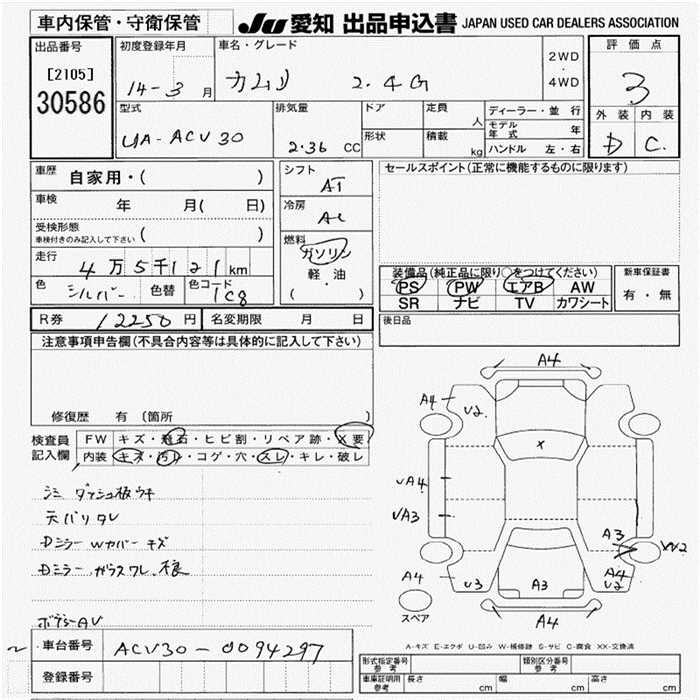 車内保管・守衛保管
JU 愛知 出品申込書 JAPAN USED CAR DEALERS ASSOCIATION
出品番号
[2105]
30586
初度登録年月
14-3 月
車名・グレード
カムリ 2.4G
2WD
・
4WD
評価点
3
外装 内装
D C
型式
UA-ACV30
排気量
2.36 CC
ドア
形状
定員
人
積載
kg
ディーラー・並行
モデル年式 年
ハンドル 左・右
車歴
自家用・( )
車検
年 月( 日)
受検形態
車検付きのみ記入して下さい ( )
走行
4万5千121km
色
シルバー
色替
色コード
1C8
シフト
AT
冷房
AC
燃料
ガソリン
軽・油
( )
セールスポイント(正常に機能するものに限ります)
装備品(純正品に限り○をつけてください)
PS PW エアB AW
SR ナビ TV カワシート
新車保証書
有・無
R券 12250円
名変期限 月 日
後日品
注意事項申告欄(不具合内容等は具体的に記入して下さい)
修復歴 有(箇所 )
検査員
記入欄
FW キズ・飛石・ヒビ割・リペア跡・X要
内装 キズ・汚レ・コゲ・穴・スレ・キレ・破レ
シミ ダッシュ板ウキ
天バリタレ
Dミラー Wカバー キズ
Dミラー ガラスワレ.
ボデーAU
車台番号 ACV30-0094297
登録番号
A4
A4
U2
X
UA4
UA3
A3
W2
A4
U3
A3
A4
U2
A4
スペア
A-キズ E-エクボ U-凹み W-補修跡 S-サビ C-腐食 XX-交換済
形式指定番号
参考
類別区分番号
参考
車庫証明用
参考
長さ cm
幅 cm
高さ cm